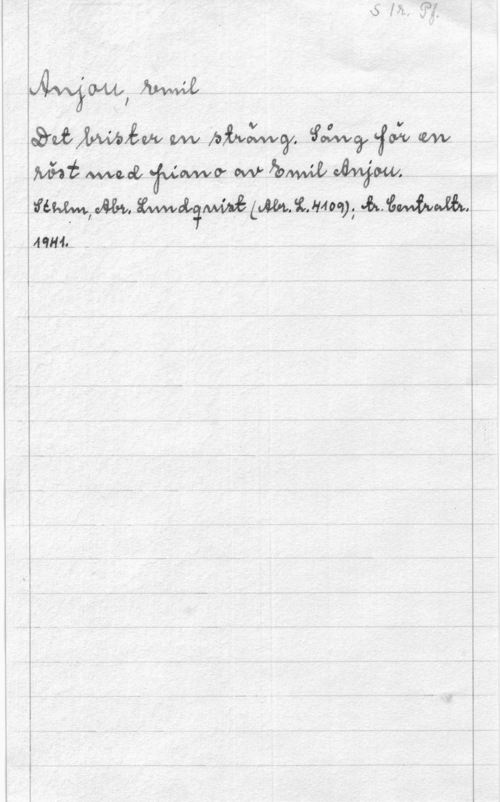 S 1 r. Pf.
Anjou, Emil
Det brister en sträng. Sång för en
röst med piano av Emil Anjou.
Sthlm, Abr. Lundqvist (Abr. L. 4109); tr. Centraltr.
1941.